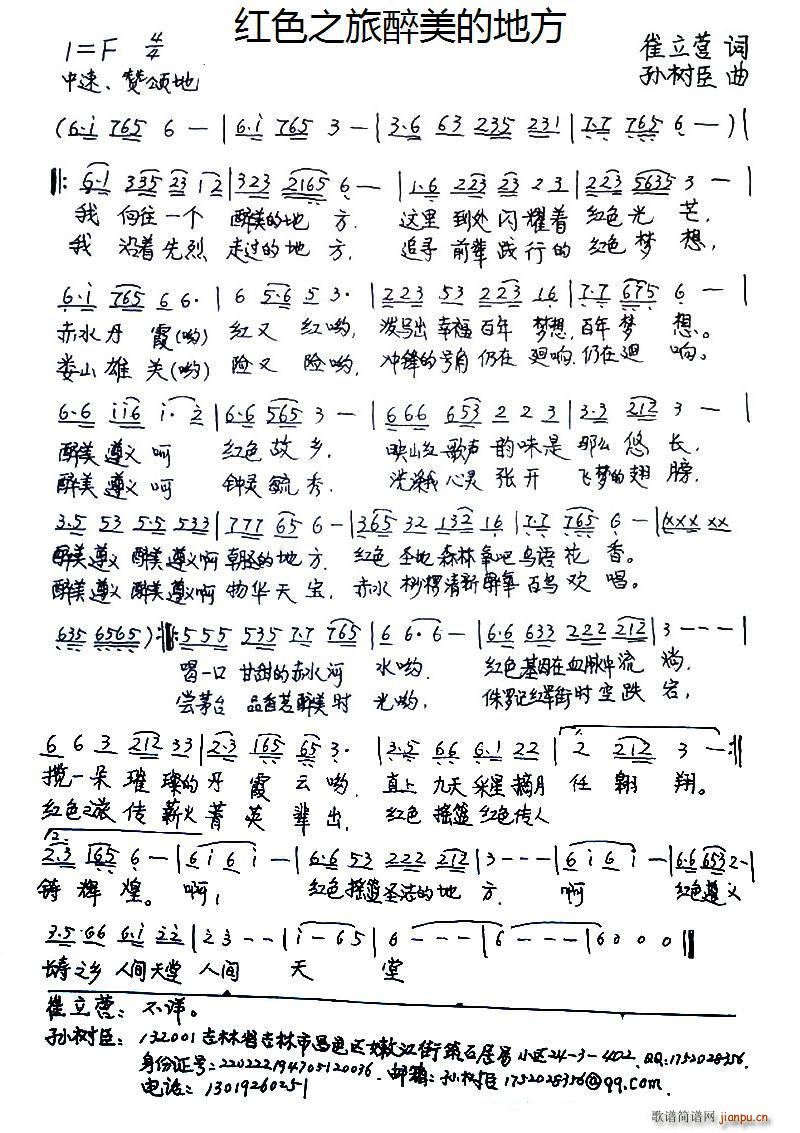 红色之旅醉美的地方
1=F 4/4
崔立营 词
中速、赞颂地
孙树臣 曲
(6·i 765 6 — | 6·i 765 3 — | 3·6 63 235 231 | 7·7 765 6 — )|
‖: 6·1 335 23 12 | 323 2165 6 — | 1·6 223 23 23 | 223 5635 3 — |
我 向往一个 醉美的地 方. 这里 到处闪耀着 红色光 芒,
我 沿着先烈 走过的地 方. 追寻 前辈践行的 红色梦 想,
6·i 765 6 6· | 6 5·6 5 3· | 223 53 223 16 | 7·7 675 6 — |
赤水丹 霞(哟) 红又 红哟, 泼写出 幸福 百年 梦想,百年梦 想。
娄山雄 关(哟) 险又 险哟, 冲锋的号角 仍在 迴响,仍在迴 响。
6·6 ii6 i·2 | 6·6 565 3 — | 666 653 2 2 3 | 3·3 212 3 — |
醉美 遵义 呵 红色 故 乡. 映山红 歌声 韵味是 那么 悠 长,
醉美 遵义 呵 钟灵 毓 秀. 洗涤我 心灵 张开 飞梦的翅 膀,
3·5 53 5·5 533 | 777 65 6 — | 365 32 132 16 | 7·7 765 6 — | xxx xx
醉美 遵义 醉美 遵义呵 朝圣的地 方. 红色 圣地 森林氧吧 鸟语 花 香。
醉美 遵义 醉美 遵义呵 物华天 宝, 赤水 桫椤清新醉氧 百鸟 欢 唱。
635 6565 ) :‖: 555 535 7·7 765 | 6 6·6 — | 6·6 633 222 212 | 3 — — — |
喝一口 甘甜的赤水河 水哟. 红色基因在血脉中流 淌,
尝茅台 品香茗醉美时 光哟, 侏罗记红军街时空跌 宕,
6 6 3 212 33 | 2·3 165 65 3· | 3·5 66 6·1 22 | 2 212 3 — :‖
揽一朵 璀 璨的丹 霞 云 哟. 直上 九天 采星 摘月 任 翱 翔。
红色之旅 传 薪火 菁 英 辈 出. 红色 摇篮 红色传人
2.
2·3 165 6 — | 6 i 6 i — | 6·6 53 222 212 | 3 — — — | 6 i 6 i — | 6·6 653 2 — |
铸 辉 煌。 啊, 红色摇篮圣洁的地 方. 啊 红色遵义
3·5·66 6·i 22 | 2 3 — — | i — 6 5 | 6 — — — | 6 — — — | 6 0 0 0 ‖
长寿之乡 人间天堂 人间 天 堂
崔立营: 不详。
孙树臣: 132001 吉林省吉林市昌邑区嫩江街筑石居易小区24-3-402. QQ:1752028356.
身份证号:220222194705120036. 邮箱:孙树臣 1752028356@qq.com.
电话: 13019260251
歌谱简谱网
jianpu.cn